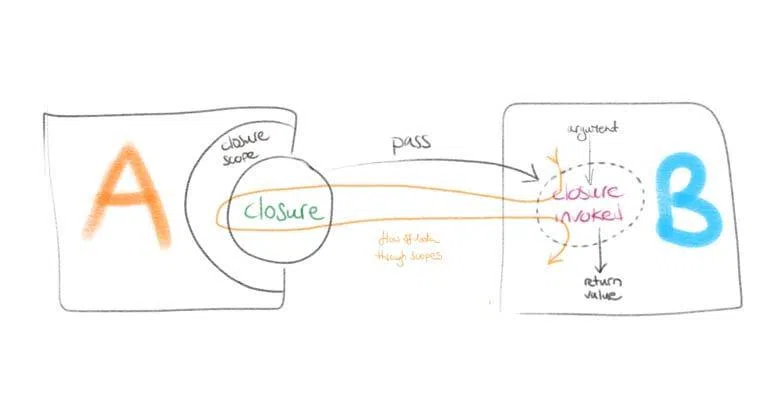 A
closure
scope
closure
pass
flow of data
through scopes
argument
closure
invoked
return
value
B